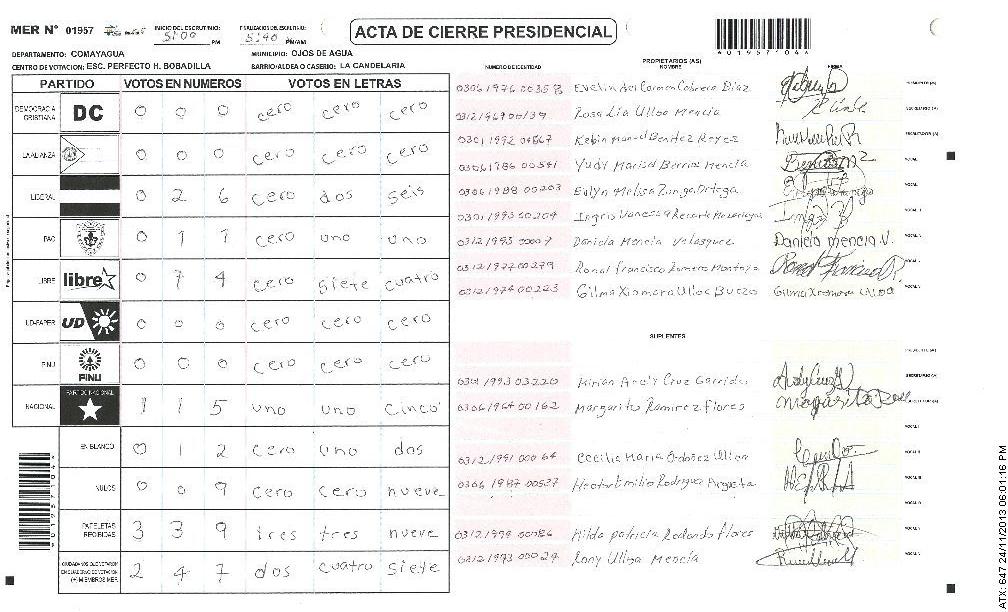 MER N° 01957 INICIO DEL ESCRUTINIO: 5:00 PM FINALIZACION DEL ESCRUTINIO: 5:40 PM/AM
ACTA DE CIERRE PRESIDENCIAL
DEPARTAMENTO: COMAYAGUA MUNICIPIO: OJOS DE AGUA
CENTRO DE VOTACION: ESC. PERFECTO H. BOBADILLA BARRIO/ALDEA O CASERIO: LA CANDELARIA
PARTIDO VOTOS EN NUMEROS VOTOS EN LETRAS
DEMOCRACIA CRISTIANA DC 0 0 0 cero cero cero
LA ALIANZA 0 0 0 cero cero cero
LIBERAL 0 2 6 cero dos seis
PAC 0 1 1 cero uno uno
LIBRE libre 0 7 4 cero siete cuatro
UD-FAPER UD 0 0 0 cero cero cero
PINU PINU 0 0 0 cero cero cero
NACIONAL PARTIDO NACIONAL 1 1 5 uno uno cinco
EN BLANCO 0 1 2 cero uno dos
NULOS 0 0 9 cero cero nueve
PAPELETAS RECIBIDAS 3 3 9 tres tres nueve
CIUDADANOS QUE VOTARON EN CUADERNO DE VOTACION (+) MIEMBROS MER 2 4 7 dos cuatro siete
PROPIETARIOS (AS)
NUMERO DE IDENTIDAD NOMBRE FIRMA
Evelin del Carmen Cabrera Diaz
Rosa Lia Ulloa Mencia
0301 1992 00867 Kebin Manuel Benitez Reyes
0306 1986 00541 Yudy Marisol Berrios Mencia
0306 1988 00203 Evlyn Melisa Zuniga Ortega
0301 1993 00204 Ingris Vanessa Recarte
0312 1993 00007 Daniela Mencia Velasquez Daniela Mencia V.
0312 1977 00279 Ronal Francisco Romero Montoya
0312 1974 00223 Gilma Xiomara Ulloa Buezo Gilma Xiomara Ulloa
SUPLENTES
0301 1993 03220 Mirian Arely Cruz Garrido
0306 1964 00162 Margarita Ramirez Flores
0312 1991 00064 Cecilia Maria Ordoñez Ulloa
0306 1987 00527 Hector Emilio Rodriguez Argueta
0312 1979 00086 Hilda patricia Redondo Flores
0312 1993 00029 Rony Ulloa Mencia
ATX: 647 24/11/2013 06:01:16 PM